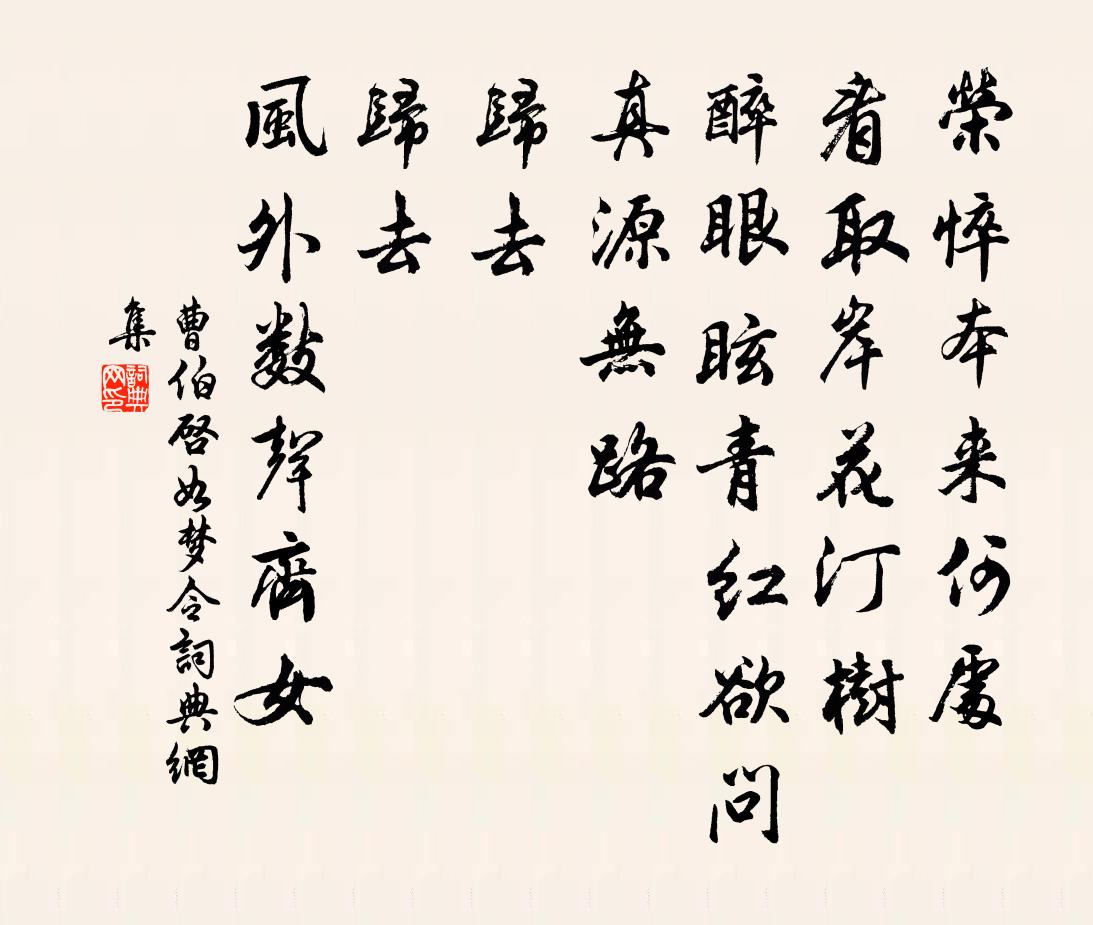 榮悴本来何處
看取岸花汀樹
醉眼眩青红欲問
真源無路
歸去
歸去
風外數聲齊女
曹伯啓如梦令詞典網
集
詞典网印